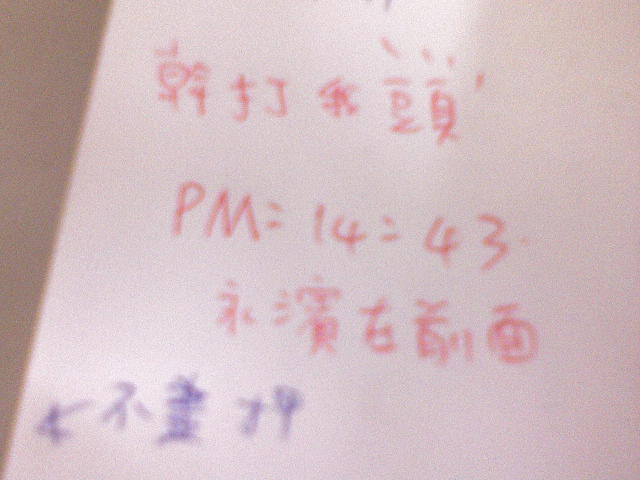 幹打我頭
PM=14=43.
永濱在前面
不畫押